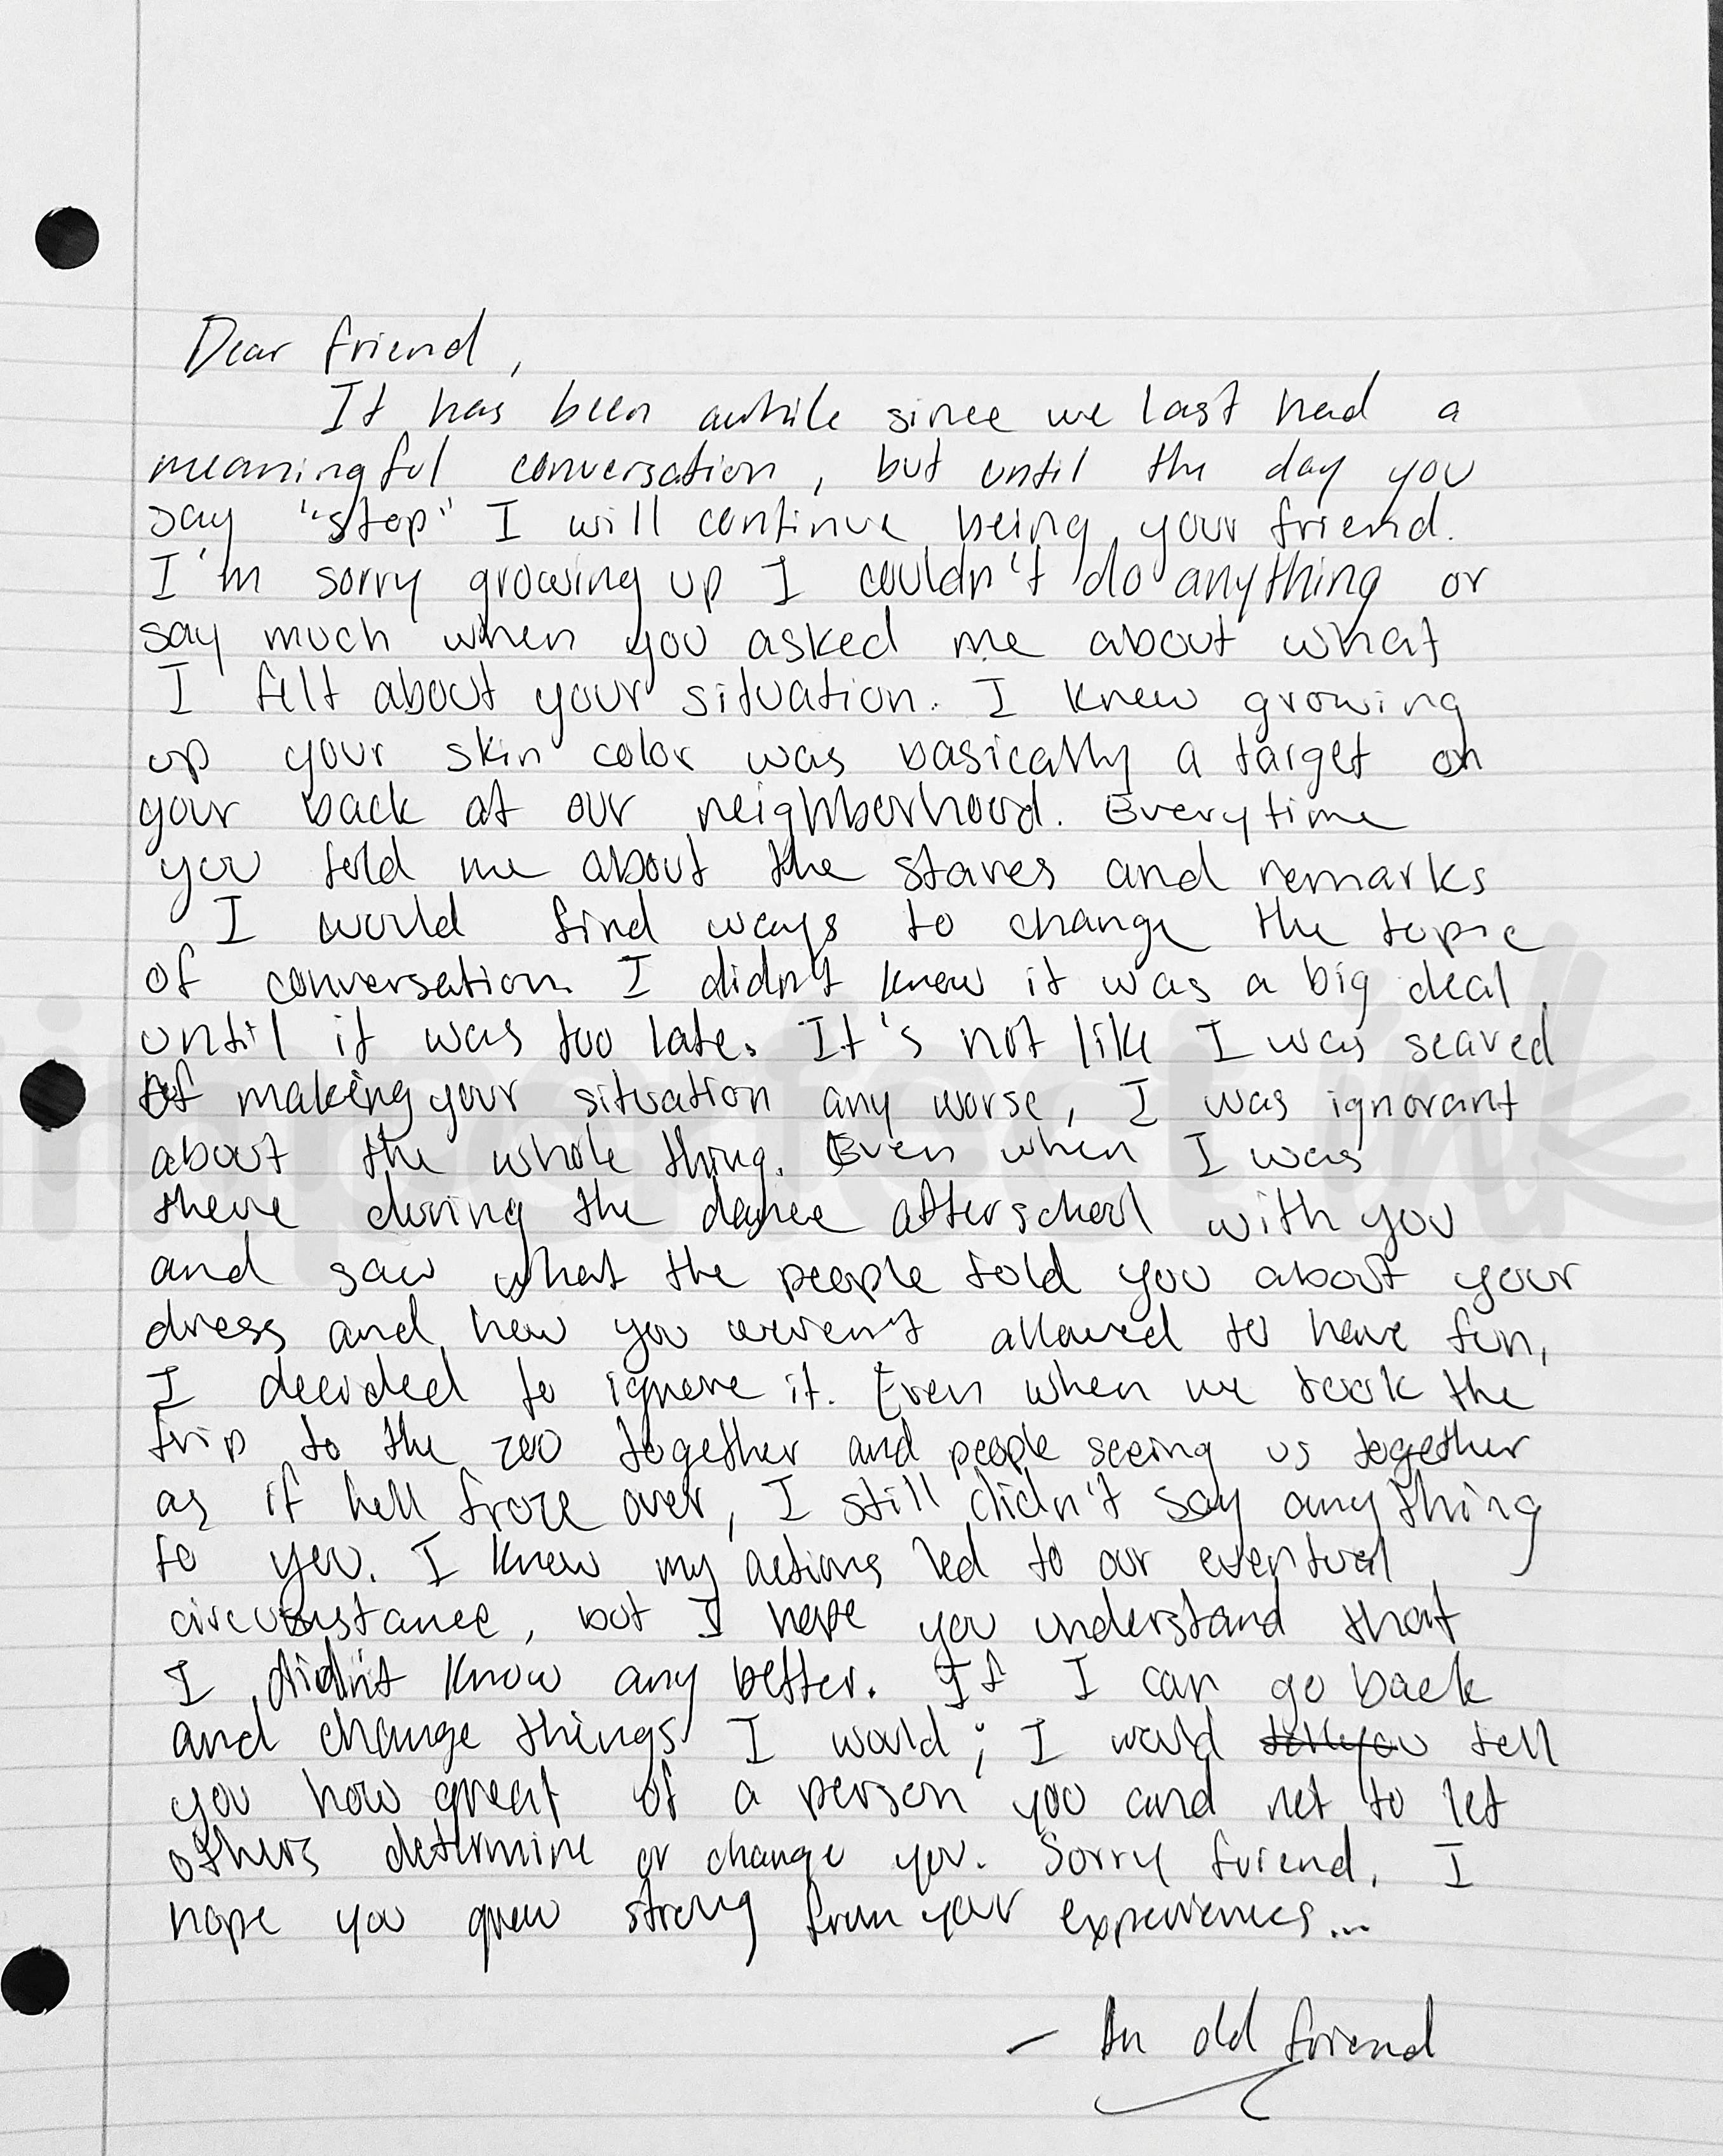 Dear friend,
It has been awhile since we last had a
meaningful conversation, but until the day you
say "stop" I will continue being your friend.
I'm sorry growing up I couldn't do anything or
say much when you asked me about what
I felt about your situation. I knew growing
up your skin color was basically a target on
your back at our neighborhood. Everytime
you told me about the stares and remarks
I would find ways to change the topic
of conversation. I didn't know it was a big deal
until it was too late. It's not like I was scared
of making your situation any worse, I was ignorant
about the whole thing. Even when I was
there during the dance afterschool with you
and saw what the people told you about your
dress and how you weren't allowed to have fun,
I decided to ignore it. Even when we took the
trip to the zoo together and people seeing us together
as if hell froze over, I still didn't say anything
to you. I know my actions led to our eventual
circumstance, but I hope you understand that
I didn't know any better. If I can go back
and change things I would; I would tell you tell
you how great of a person you and not to let
others determine or change you. Sorry friend, I
hope you grew strong from your experiences...
- An old friend
imperfect ink